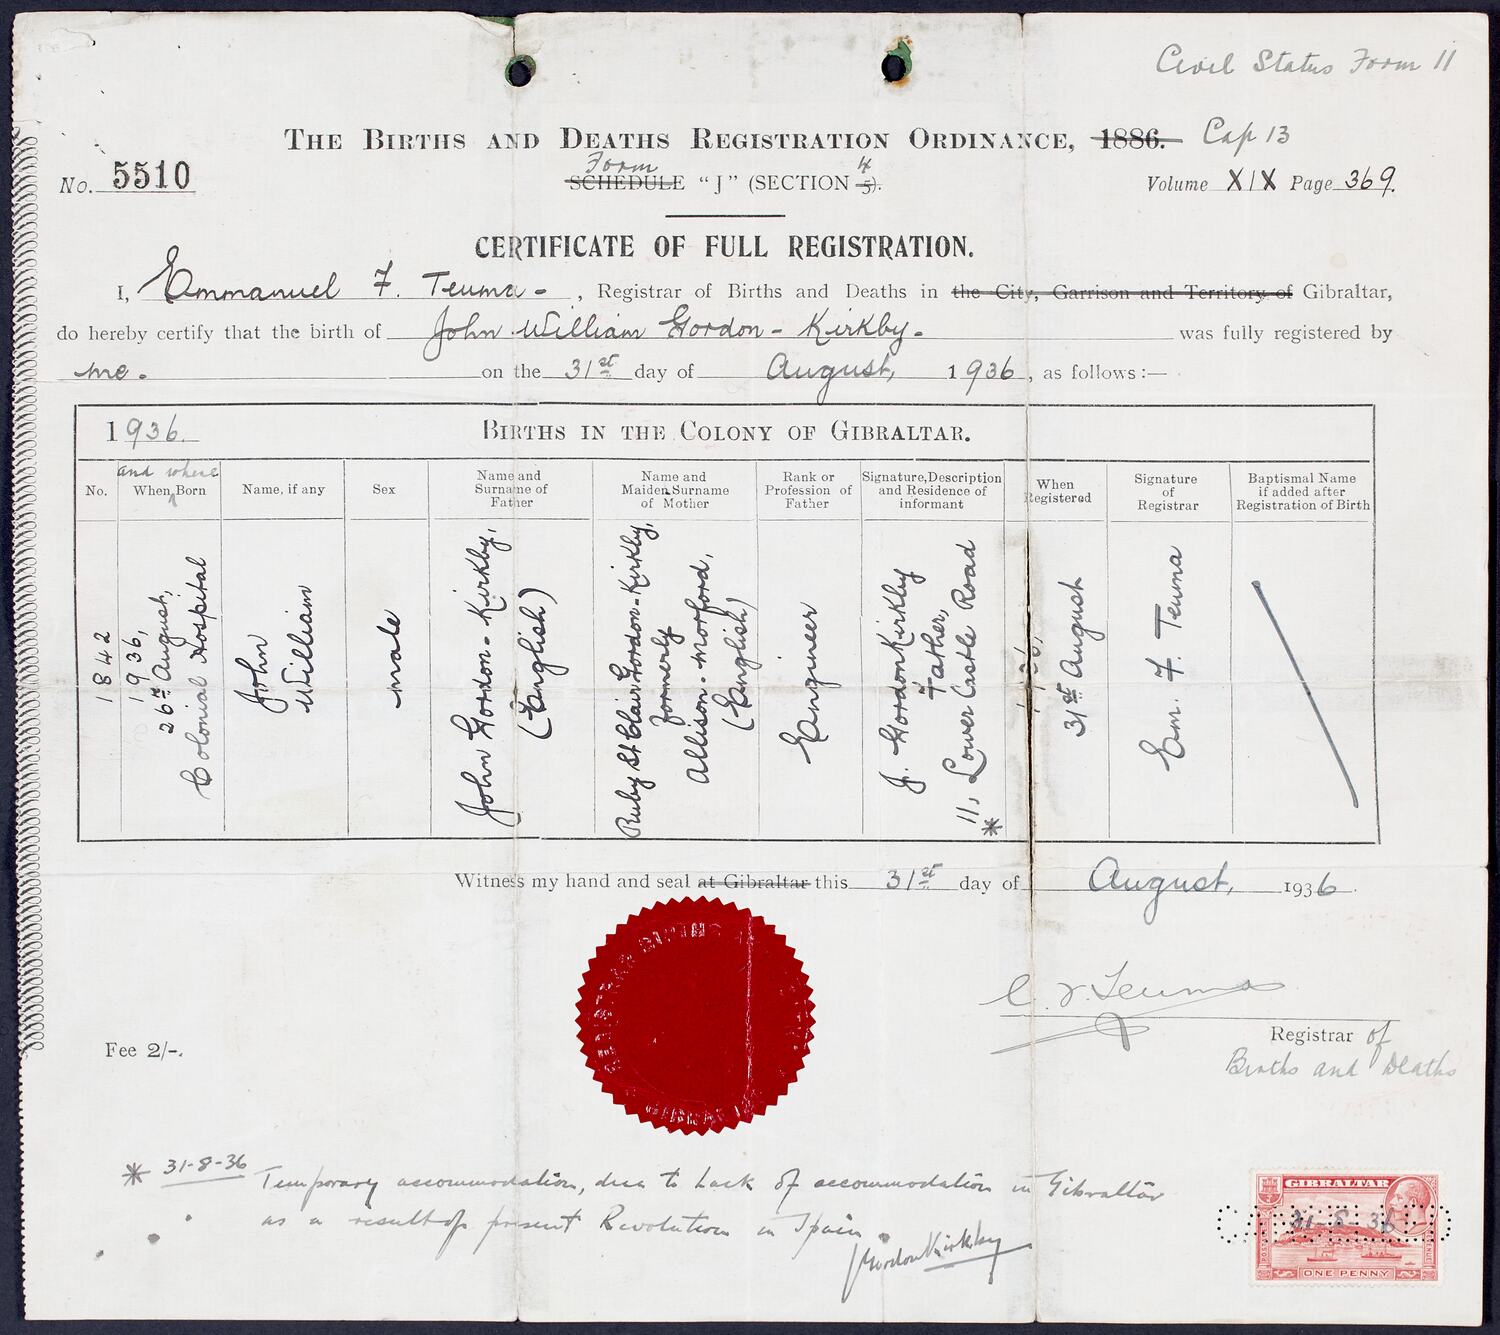 Civil Status Form 11
THE BIRTHS AND DEATHS REGISTRATION ORDINANCE, 1886. Cap 13
Form 4
No. 5510 SCHEDULE "J" (SECTION 5).
Volume XIX Page 369.
CERTIFICATE OF FULL REGISTRATION.
I, Emmanuel F. Teuma - , Registrar of Births and Deaths in the City, Garrison and Territory of Gibraltar,
do hereby certify that the birth of John William Gordon-Kirkby. was fully registered by
me. on the 31st day of August, 1936, as follows:—
1936. BIRTHS IN THE COLONY OF GIBRALTAR.
No.
and where
When Born
Name, if any
Sex
Name and
Surname of
Father
Name and
Maiden Surname
of Mother
Rank or
Profession of
Father
Signature, Description
and Residence of
informant
When
Registered
Signature
of
Registrar
Baptismal Name
if added after
Registration of Birth
1842
1936,
26th August,
Colonial Hospital
John
William
male
John Gordon-Kirkby,
(English)
Ruby St Clair Gordon-Kirkby,
formerly
Allison-Morford,
(English)
Engineer
J. Gordon Kirkby
Father,
11, Lower Castle Road
*
1936,
31st August
Em. F. Teuma
Witness my hand and seal at Gibraltar this 31st day of August, 1936.
E. F. Teuma
Registrar of
Births and Deaths
Fee 2/-.
* 31-8-36 Temporary accommodation, due to lack of accommodation in Gibraltar
as a result of present Revolution in Spain.
J Gordon Kirkby
GIBRALTAR
31-8-36
ONE PENNY